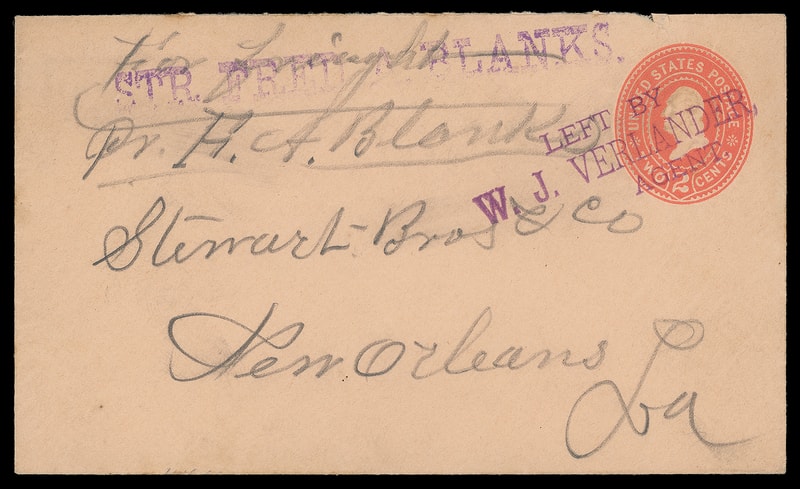 STR. FRED A. BLANKS.
Pr. H. A. Blanks
LEFT BY
W. J. VERLANDER,
AGENT
UNITED STATES POSTAGE
TWO 2 CENTS
Stewart Bros & Co
New Orleans
La